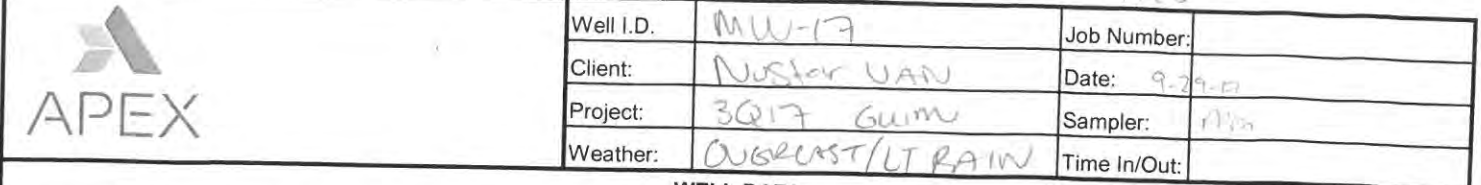 APEX
Well I.D. MW-17 Job Number:
Client: NuStar VAN Date: 9-29-17
Project: 3Q17 GWM Sampler:
Weather: OVERCAST/LT RAIN Time In/Out: